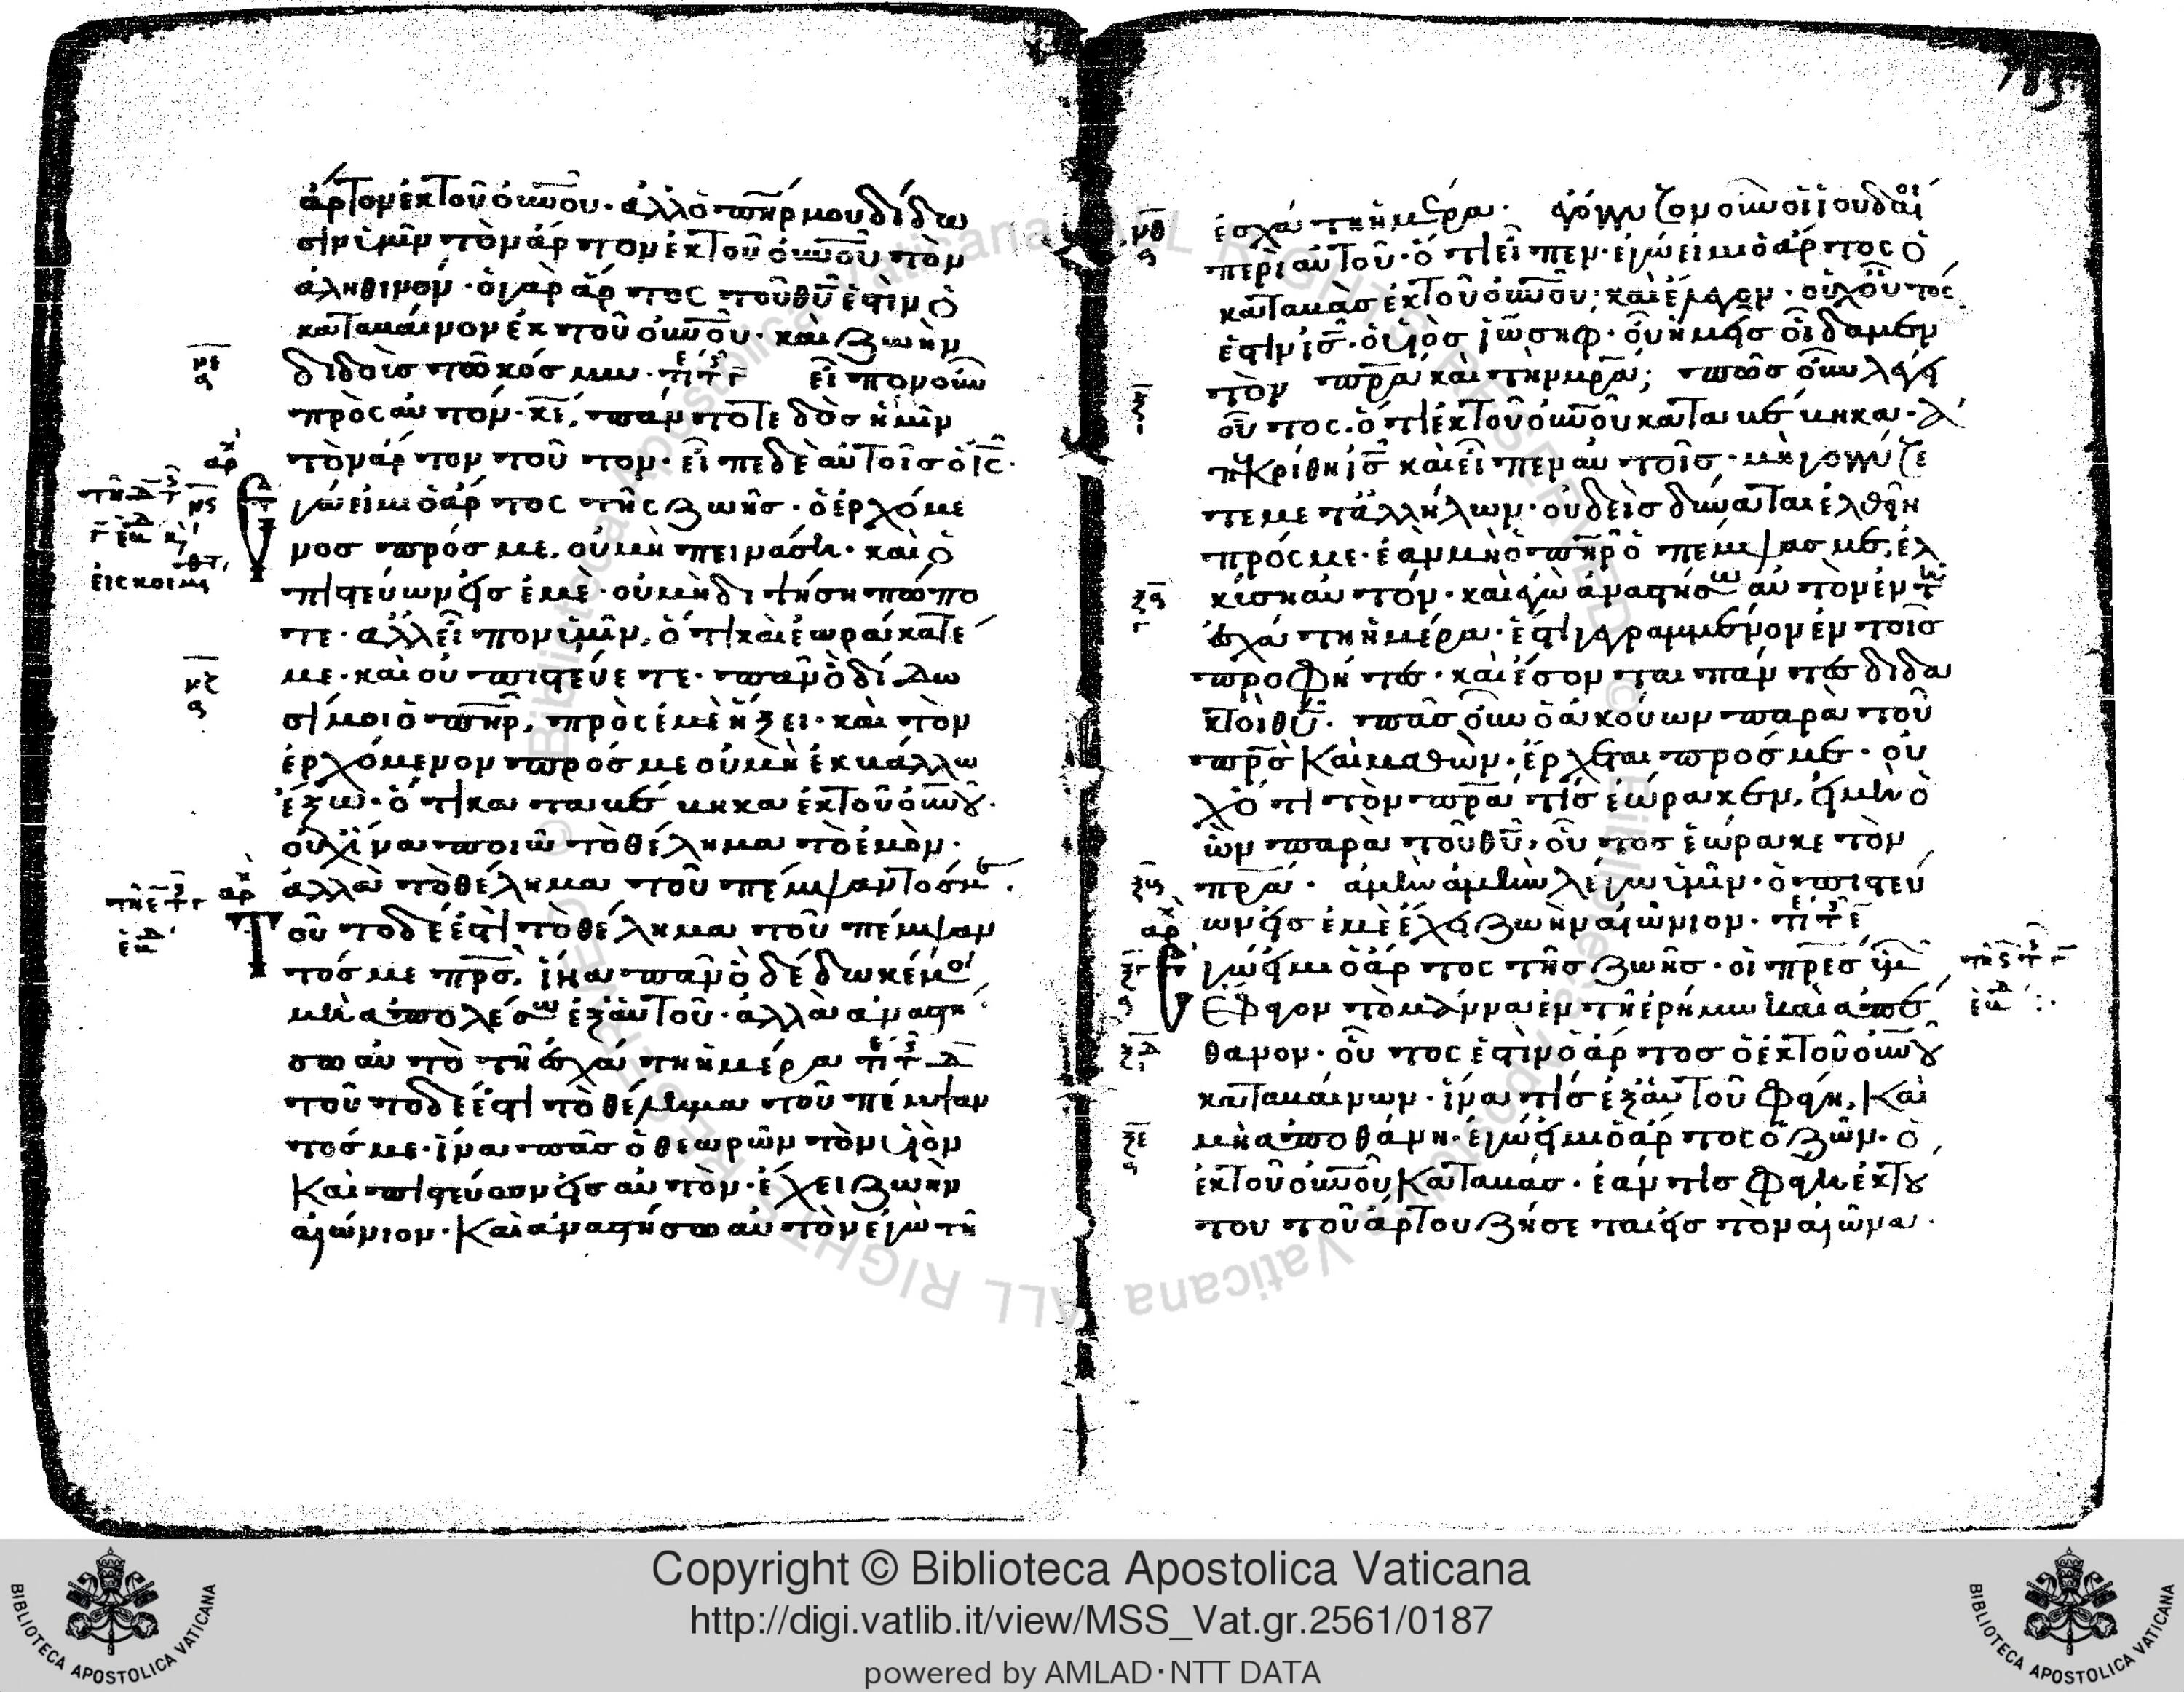 ἄρτον ἐκ τοῦ οὐνου· ἀλλ ὁ πηρ μου δίδω
σιν ὑμῖν τὸν ἄρτον ἐκ τοῦ οὐνου τὸν
ἀληθινόν· ὁ γὰρ ἄρτος τοῦ θυ ἐστὶν ὁ
καταβαίνων ἐκ τοῦ οὐνου· καὶ ζωὴν
διδοὺς τῶ κόσμω· εἶπον οὖν
πρὸς αὐτόν· κε, πάντοτε δὸς ἡμῖν
τὸν ἄρτον τοῦτον· εἶπε δὲ αὐτοῖς ὁ ις·
γώ εἰμι ὁ ἄρτος τῆς ζωῆς· ὁ ἐρχόμε
νος πρός με, οὐ μὴ πεινάση· καὶ ὁ
πιστεύων εἰς ἐμὲ· οὐ μὴ διψήση πώπο
τε· ἀλλ εἶπον ὑμῖν, ὅτι καὶ ἑωράκατέ
με· καὶ οὐ πιστεύετε· πᾶν ὃ δίδω
σί μοι ὁ πηρ, πρὸς ἐμὲ ἥξει· καὶ τὸν
ἐρχόμενον πρός με οὐ μὴ ἐκβάλλω
ἔξω· ὅτι καταβέβηκα ἐκ τοῦ οὐνου·
οὐχ ἵνα ποιῶ τὸ θέλημα τὸ ἐμὸν·
ἀλλὰ τὸ θέλημα τοῦ πέμψαντός με·
οῦτο δέ ἐστι τὸ θέλημα τοῦ πέμψαν
τός με πρς, ἵνα πᾶν ὃ δέδωκέ μοι
μὴ ἀπολέσω ἐξ αὐτοῦ· ἀλλὰ ἀναστή
σω αὐτὸ τῆ ἐσχάτη ἡμέρα
τοῦτο δέ ἐστι τὸ θέλημα τοῦ πέμψαν
τός με· ἵνα πᾶς ὁ θεωρῶν τὸν υἱὸν
καὶ πιστεύων εἰς αὐτὸν· ἔχει ζωὴν
αἰώνιον· καὶ ἀναστήσω αὐτὸν ἐγὼ τῆ
ἐσχάτη ἡμέρα· γόγγυζον οὖν οἱ ἰουδαῖοι
περὶ αὐτοῦ· ὅτι εἶπεν· ἐγώ εἰμι ὁ ἄρτος ὁ
καταβὰς ἐκ τοῦ οὐνου; καὶ ἔλεγον· οὐχ οὗτός
ἐστιν ις· ὁ υἱὸς ἰωσηφ· οὗ ἡμεῖς οἴδαμεν
τὸν πρα καὶ τὴν μρα; πῶς οὖν λέγει
οὗτος· ὅτι ἐκ τοῦ οὐνου καταβέβηκα· ἀ
πεκρίθη ις καὶ εἶπεν αὐτοῖς· μὴ γογγύζε
τε μετ ἀλλήλων· οὐδεὶς δύναται ἐλθεῖν
πρός με· ἐὰν μὴ ὁ πηρ ὁ πέμψας με, ἑλ
κύση αὐτόν· καὶ ἐγὼ ἀναστήσω αὐτὸν ἐν τῆ
ἐσχάτη ἡμέρα· ἔστι γεγραμμένον ἐν τοῖς
προφήταις· καὶ ἔσονται πάντες διδα
κτοὶ θυ· πᾶς οὖν ὁ ἀκούων παρὰ τοῦ
πρς καὶ μαθὼν· ἔρχεται πρός με· οὐ
χ ὅτι τὸν πρα τίς ἑώρακεν, εἰ μὴ ὁ
ὢν παρὰ τοῦ θυ· οὗτος ἑώρακε τὸν
πρα· ἀμὴν ἀμὴν λέγω ὑμῖν· ὁ πιστεύ
ων εἰς ἐμὲ ἔχει ζωὴν αἰώνιον·
γώ εἰμι ὁ ἄρτος τῆς ζωῆς· οἱ πρες ὑμ
ἔφαγον τὸ μάννα ἐν τῆ ἐρήμω καὶ ἀπέ
θανον· οὗτος ἐστὶν ὁ ἄρτος ὁ ἐκ τοῦ οὐνου
καταβαίνων· ἵνα τίς ἐξ αὐτοῦ φάγη, καὶ
μὴ ἀποθάνη· ἐγώ εἰμι ὁ ἄρτος ὁ ζῶν· ὁ
ἐκ τοῦ οὐνου καταβάς· ἐάν τις φάγη ἐκ του
του τοῦ ἄρτου ζήσεται εἰς τὸν αἰῶνα·
Copyright © Biblioteca Apostolica Vaticana
http://digi.vatlib.it/view/MSS_Vat.gr.2561/0187
powered by AMLAD·NTT DATA
BIBLIOTECA APOSTOLICA VATICANA
BIBLIOTECA APOSTOLICA VATICANA